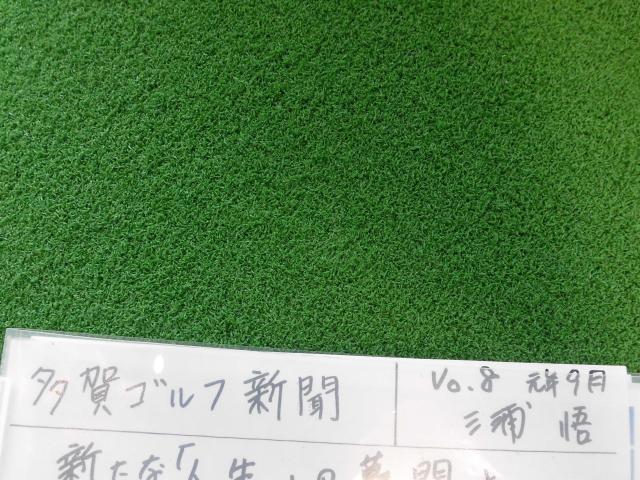 多賀ゴルフ新聞
Vo.8 元年9月
三浦 悟
新たな「人生